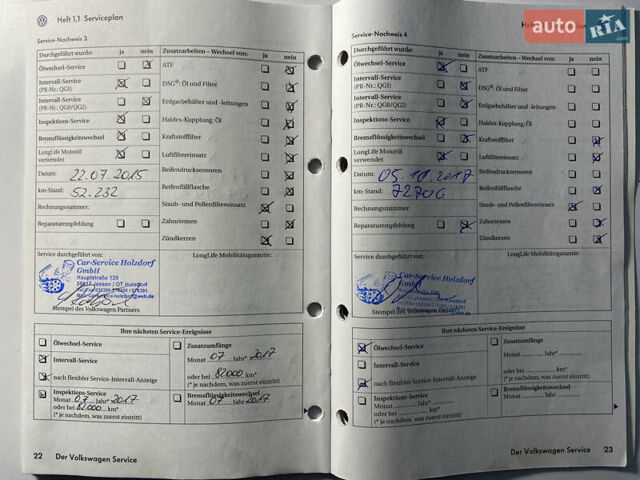 Heft 1.1 Serviceplan
Service-Nachweis 3
Durchgeführt wurde: ja nein
Ölwechsel-Service
Intervall-Service
(PR-Nr.: QGI)
Intervall-Service
(PR-Nr.: QG0/QG2)
Inspektions-Service
Bremsflüssigkeitswechsel
LongLife Motoröl
verwendet
Datum: 22.07.2015
km-Stand: 52.232
Rechnungsnummer:
Reparaturempfehlung
Zusatzarbeiten – Wechsel von: ja nein
ATF
DSG®: Öl und Filter
Erdgasbehälter und -leitungen
Haldex-Kupplung: Öl
Kraftstofffilter
Luftfiltereinsatz
Reifendrucksensoren
Reifenfüllflasche
Staub- und Pollenfiltereinsatz
Zahnriemen
Zündkerzen
Service durchgeführt von:
LongLife Mobilitätsgarantie:
Car-Service Holzdorf
GmbH
Hauptstraße 120
06917 Jessen / OT Holzdorf
Stempel des Volkswagen Partners
Ihre nächsten Service-Ereignisse
Ölwechsel-Service
Intervall-Service
nach flexibler Service-Intervall-Anzeige
Inspektions-Service
Monat 07 Jahr* 2017
oder bei 82000 km*
(* je nachdem, was zuerst eintritt)
Zusatzumfänge
Monat 07 Jahr* 2017
oder bei 82000 km*
(* je nachdem, was zuerst eintritt)
Bremsflüssigkeitswechsel
Monat 07 Jahr 2017
22 Der Volkswagen Service
Heft 1.1
Service-Nachweis 4
Durchgeführt wurde: ja nein
Ölwechsel-Service
Intervall-Service
(PR-Nr.: QGI)
Intervall-Service
(PR-Nr.: QG0/QG2)
Inspektions-Service
Bremsflüssigkeitswechsel
LongLife Motoröl
verwendet
Datum: 05.10.2017
km-Stand: 72706
Rechnungsnummer:
Reparaturempfehlung
Zusatzarbeiten – Wechsel von: ja nein
ATF
DSG®: Öl und Filter
Erdgasbehälter und -leitungen
Haldex-Kupplung: Öl
Kraftstofffilter
Luftfiltereinsatz
Reifendrucksensoren
Reifenfüllflasche
Staub- und Pollenfiltereinsatz
Zahnriemen
Zündkerzen
Service durchgeführt von:
LongLife Mobilitätsgarantie:
Car-Service Holzdorf
GmbH
Stempel des Volkswagen Partners
Ihre nächsten Service-Ereignisse
Ölwechsel-Service
Intervall-Service
nach flexibler Service-Intervall-Anzeige
Inspektions-Service
Monat Jahr*
oder bei km*
(* je nachdem, was zuerst eintritt)
Zusatzumfänge
Monat Jahr*
oder bei km*
(* je nachdem, was zuerst eintritt)
Bremsflüssigkeitswechsel
Monat Jahr
Der Volkswagen Service 23
auto RIA